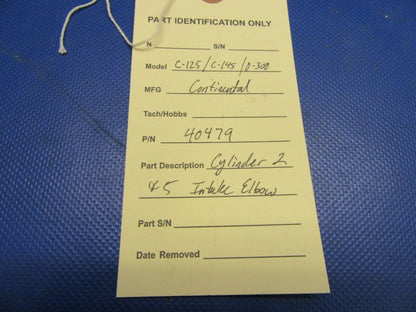 PART IDENTIFICATION ONLY
N S/N
Model C-125/C-145/O-300
MFG Continental
Tach/Hobbs
P/N 40479
Part Description Cylinder 2
+5 Intake Elbow
Part S/N
Date Removed